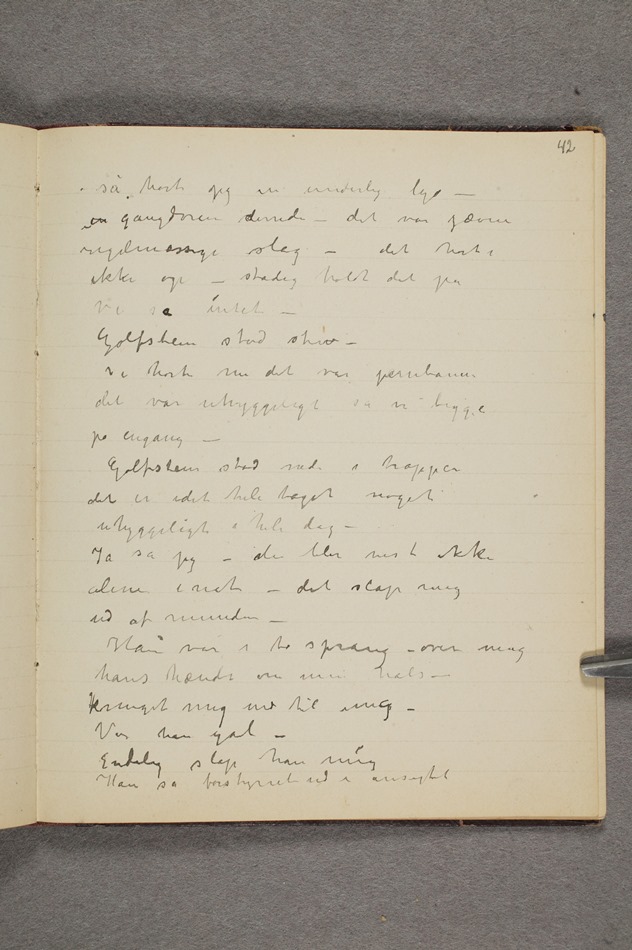 42
så hørte jeg en underlig lyd —
en gangdøren dernede — det var jævne
regelmæssige slag — det hørte
ikke op — stadig holdt det på
Vi så intet —
Golfstein stod stiv —
vi hørte nu det var jernbanen
det var uhyggeligt sa vi begge
på engang —
Golfstein stod nede i trappen
det er i det hele taget noget
uhyggeligt i hele dag —
Ja sa jeg — du blir vist ikke
alene i nat — det slap mig
ud af munden —
Han var i to sprang — over mig
hans hænder om min hals —
tvinget mig ned til mig —
Var han gal —
Endelig slap han mig
Han så forstyrret ud i ansigtet